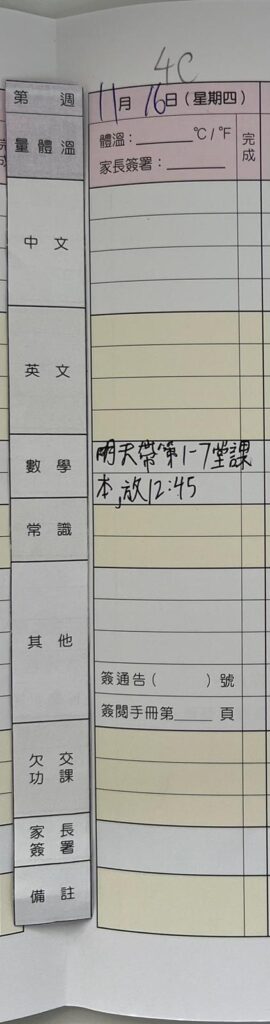 4C
第 週
11月16日(星期四)
量體溫
體溫:______°C/°F
家長簽署:______
完成
中文
英文
數學
明天帶第1-7堂課
本,放12:45
常識
其他
簽通告( )號
簽閱手冊第____頁
欠交
功課
家長
簽署
備註